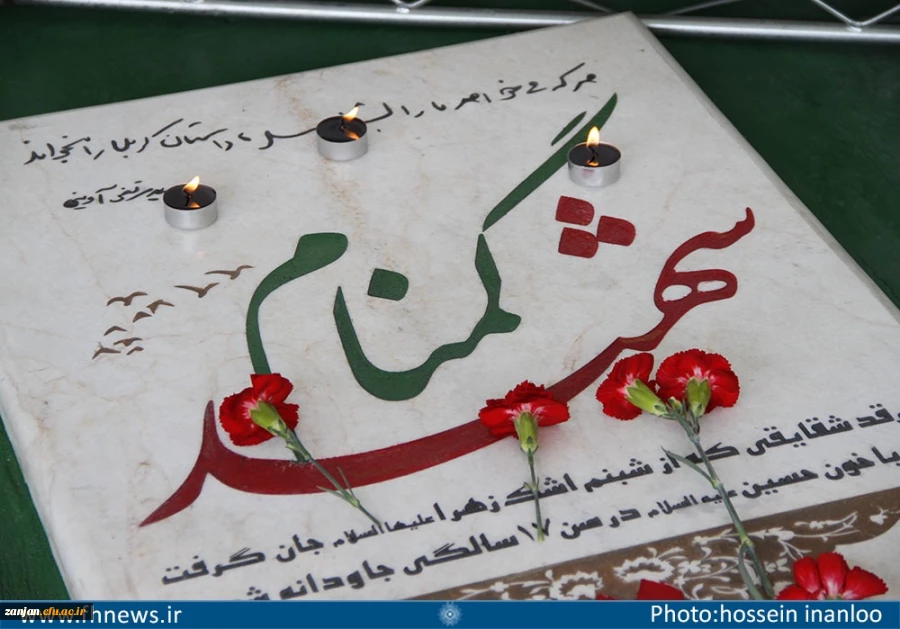 هر که می خواهد ما را بشناسد داستان کربلا را بخواند
سید مرتضی آوینی
شهید گمنام
مرقد شقایقی که از شبنم اشک زهرا علیها السلام جان گرفت
با خون حسین علیه السلام در سن ۱۷ سالگی جاودانه
zanjan.cfu.ac.ir
www.nnews.ir
Photo:hossein inanloo